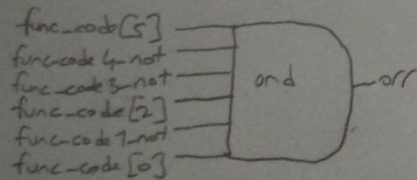 func_code[5]
func-code 4-not
func-code 3-not
func_code[2]
func-code 1-not
func-code[0]
and
orr